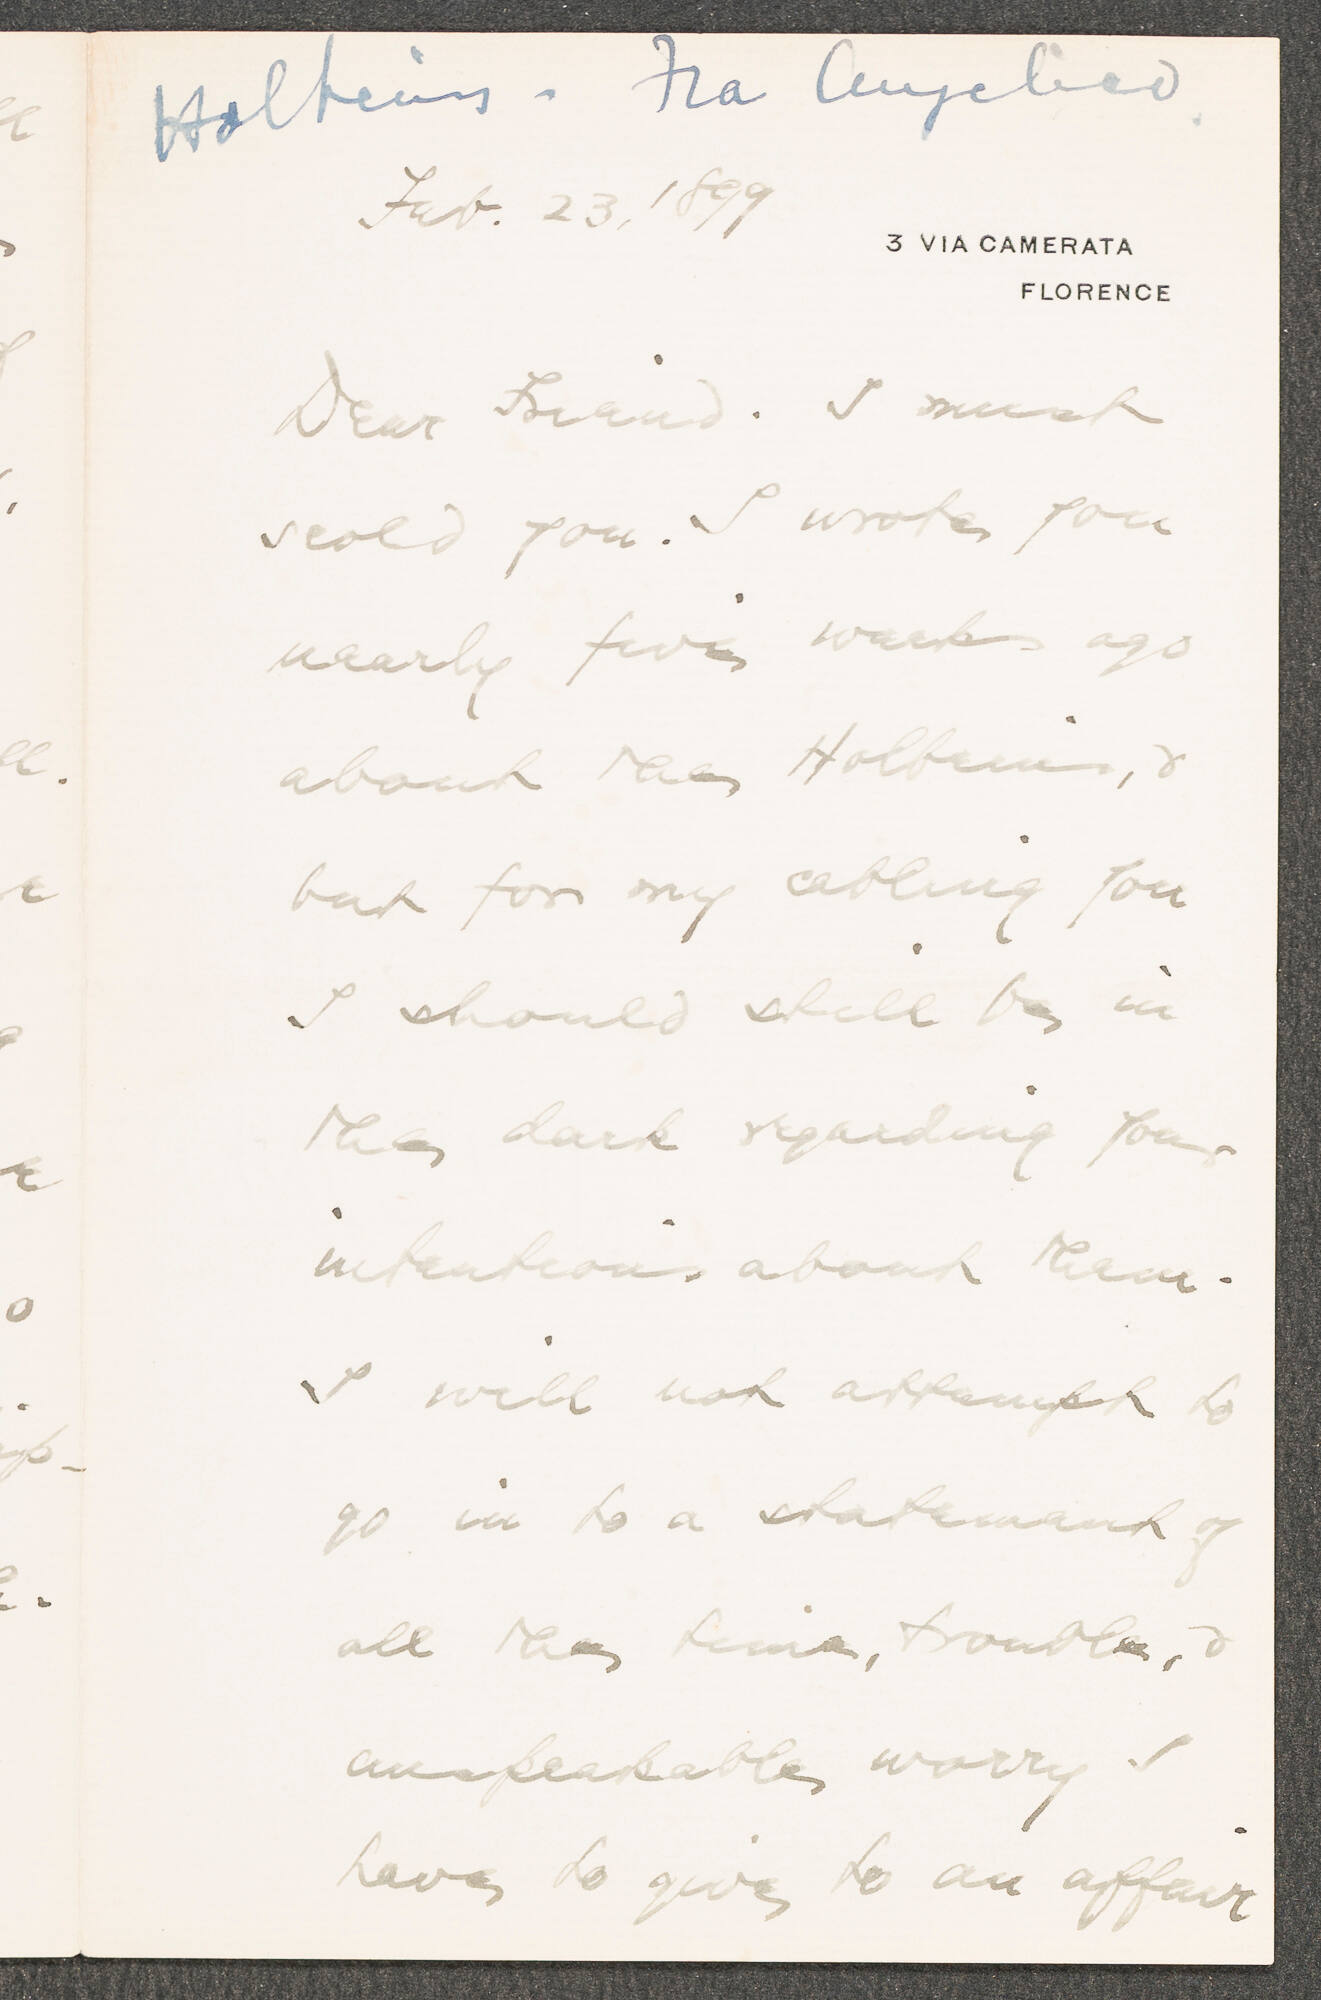 Holbeins - Fra Angelico.
Feb. 23, 1899
3 VIA CAMERATA
FLORENCE
Dear Friend. I must
scold you. I wrote you
nearly five weeks ago
about the Holbeins, &
but for my cabling you
I should still be in
the dark regarding your
intentions about them.
I will not attempt to
go in to a statement of
all the time, trouble, &
unspeakable worry I
have to give to an affair